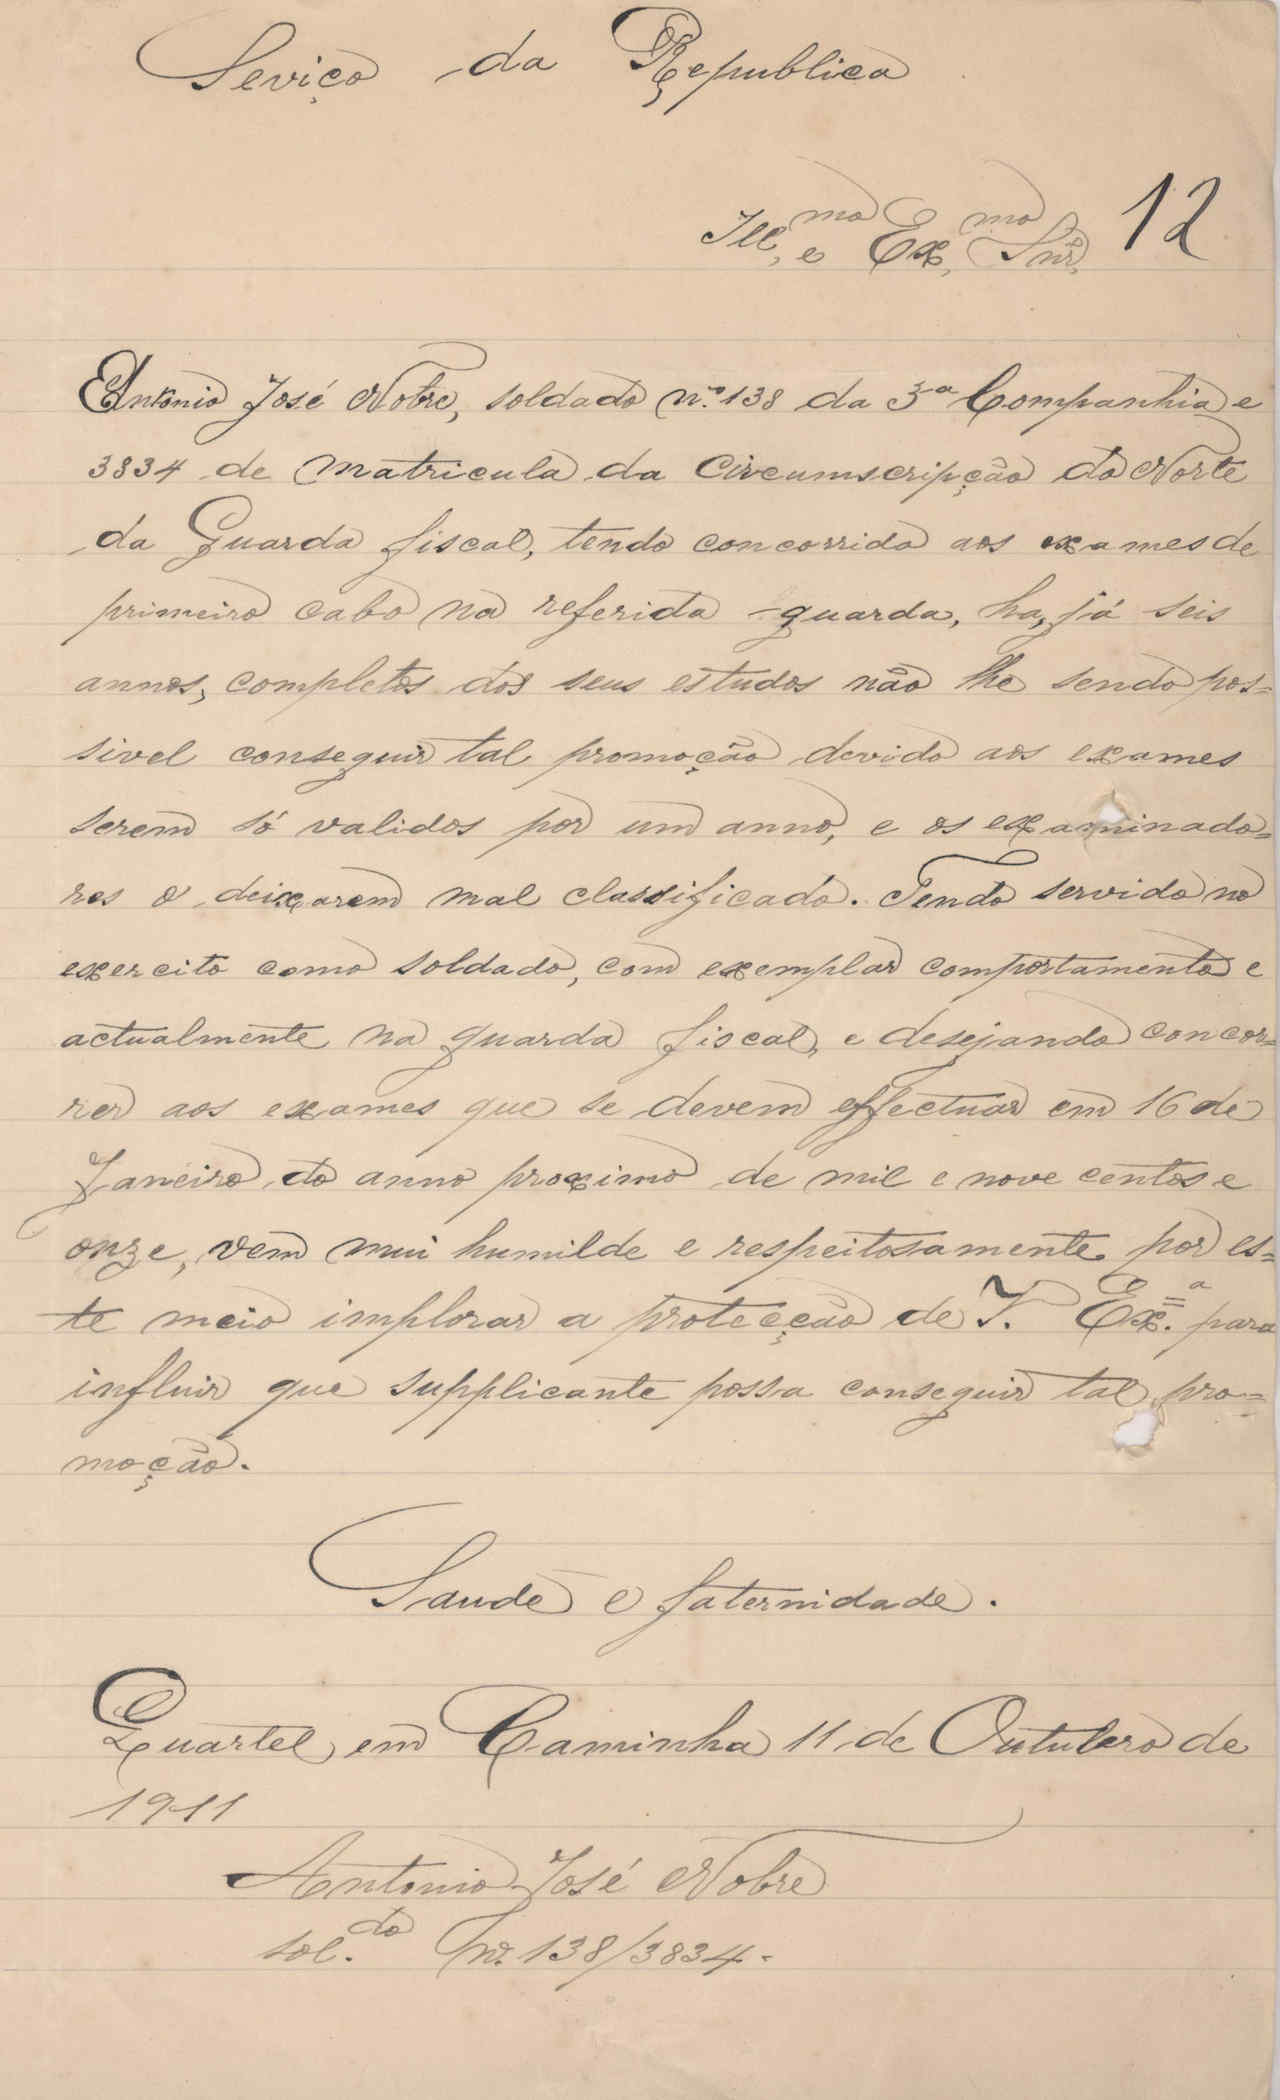 Seviço da Republica
Ill.mo e Ex.mo Snr. 12
Antonio José Nobre, soldado n.º 138 da 3ª Companhia e
3834 de matricula da Circumscripção do Norte
da Guarda fiscal, tendo concorrido aos exames de
primeiro cabo na referida guarda, ha, já seis
annos, completos dos seus estudos não lhe sendo pos=
sivel conseguir tal promoção devido aos exames
serem só validos por um anno, e os examinado=
res o deixarem mal classificado. Tendo servido no
exercito como soldado, com exemplar comportamento e
actualmente na guarda fiscal, e desejando concor=
rer aos exames que se devem effectuar em 16 de
Janeiro do anno proximo de mil e nove centos e
onze, vem mui humilde e respeitosamente por es=
te meio implorar a protecção de V. Ex.ª para
influir que supplicante possa conseguir tal pro=
moção.
Saude e faternidade.
Quartel em Caminha 11 de Outubro de
1911
Antonio José Nobre
sol.do N.º 138/3834.